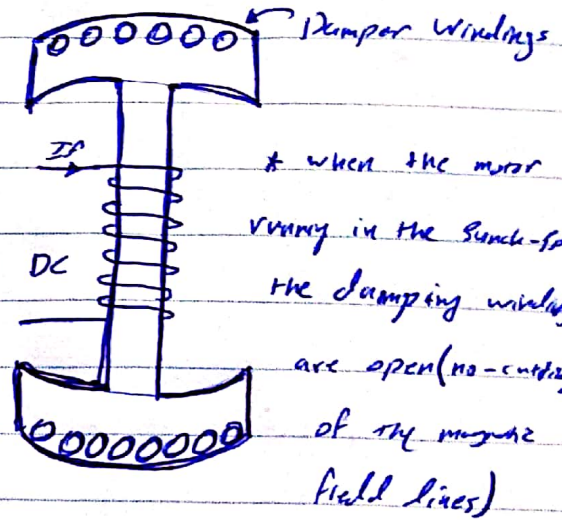 Damper Windings
If
* when the motor
runny in the Synch-sp
DC
the damping winding
are open (no-cutting
of the magnetic
field lines)